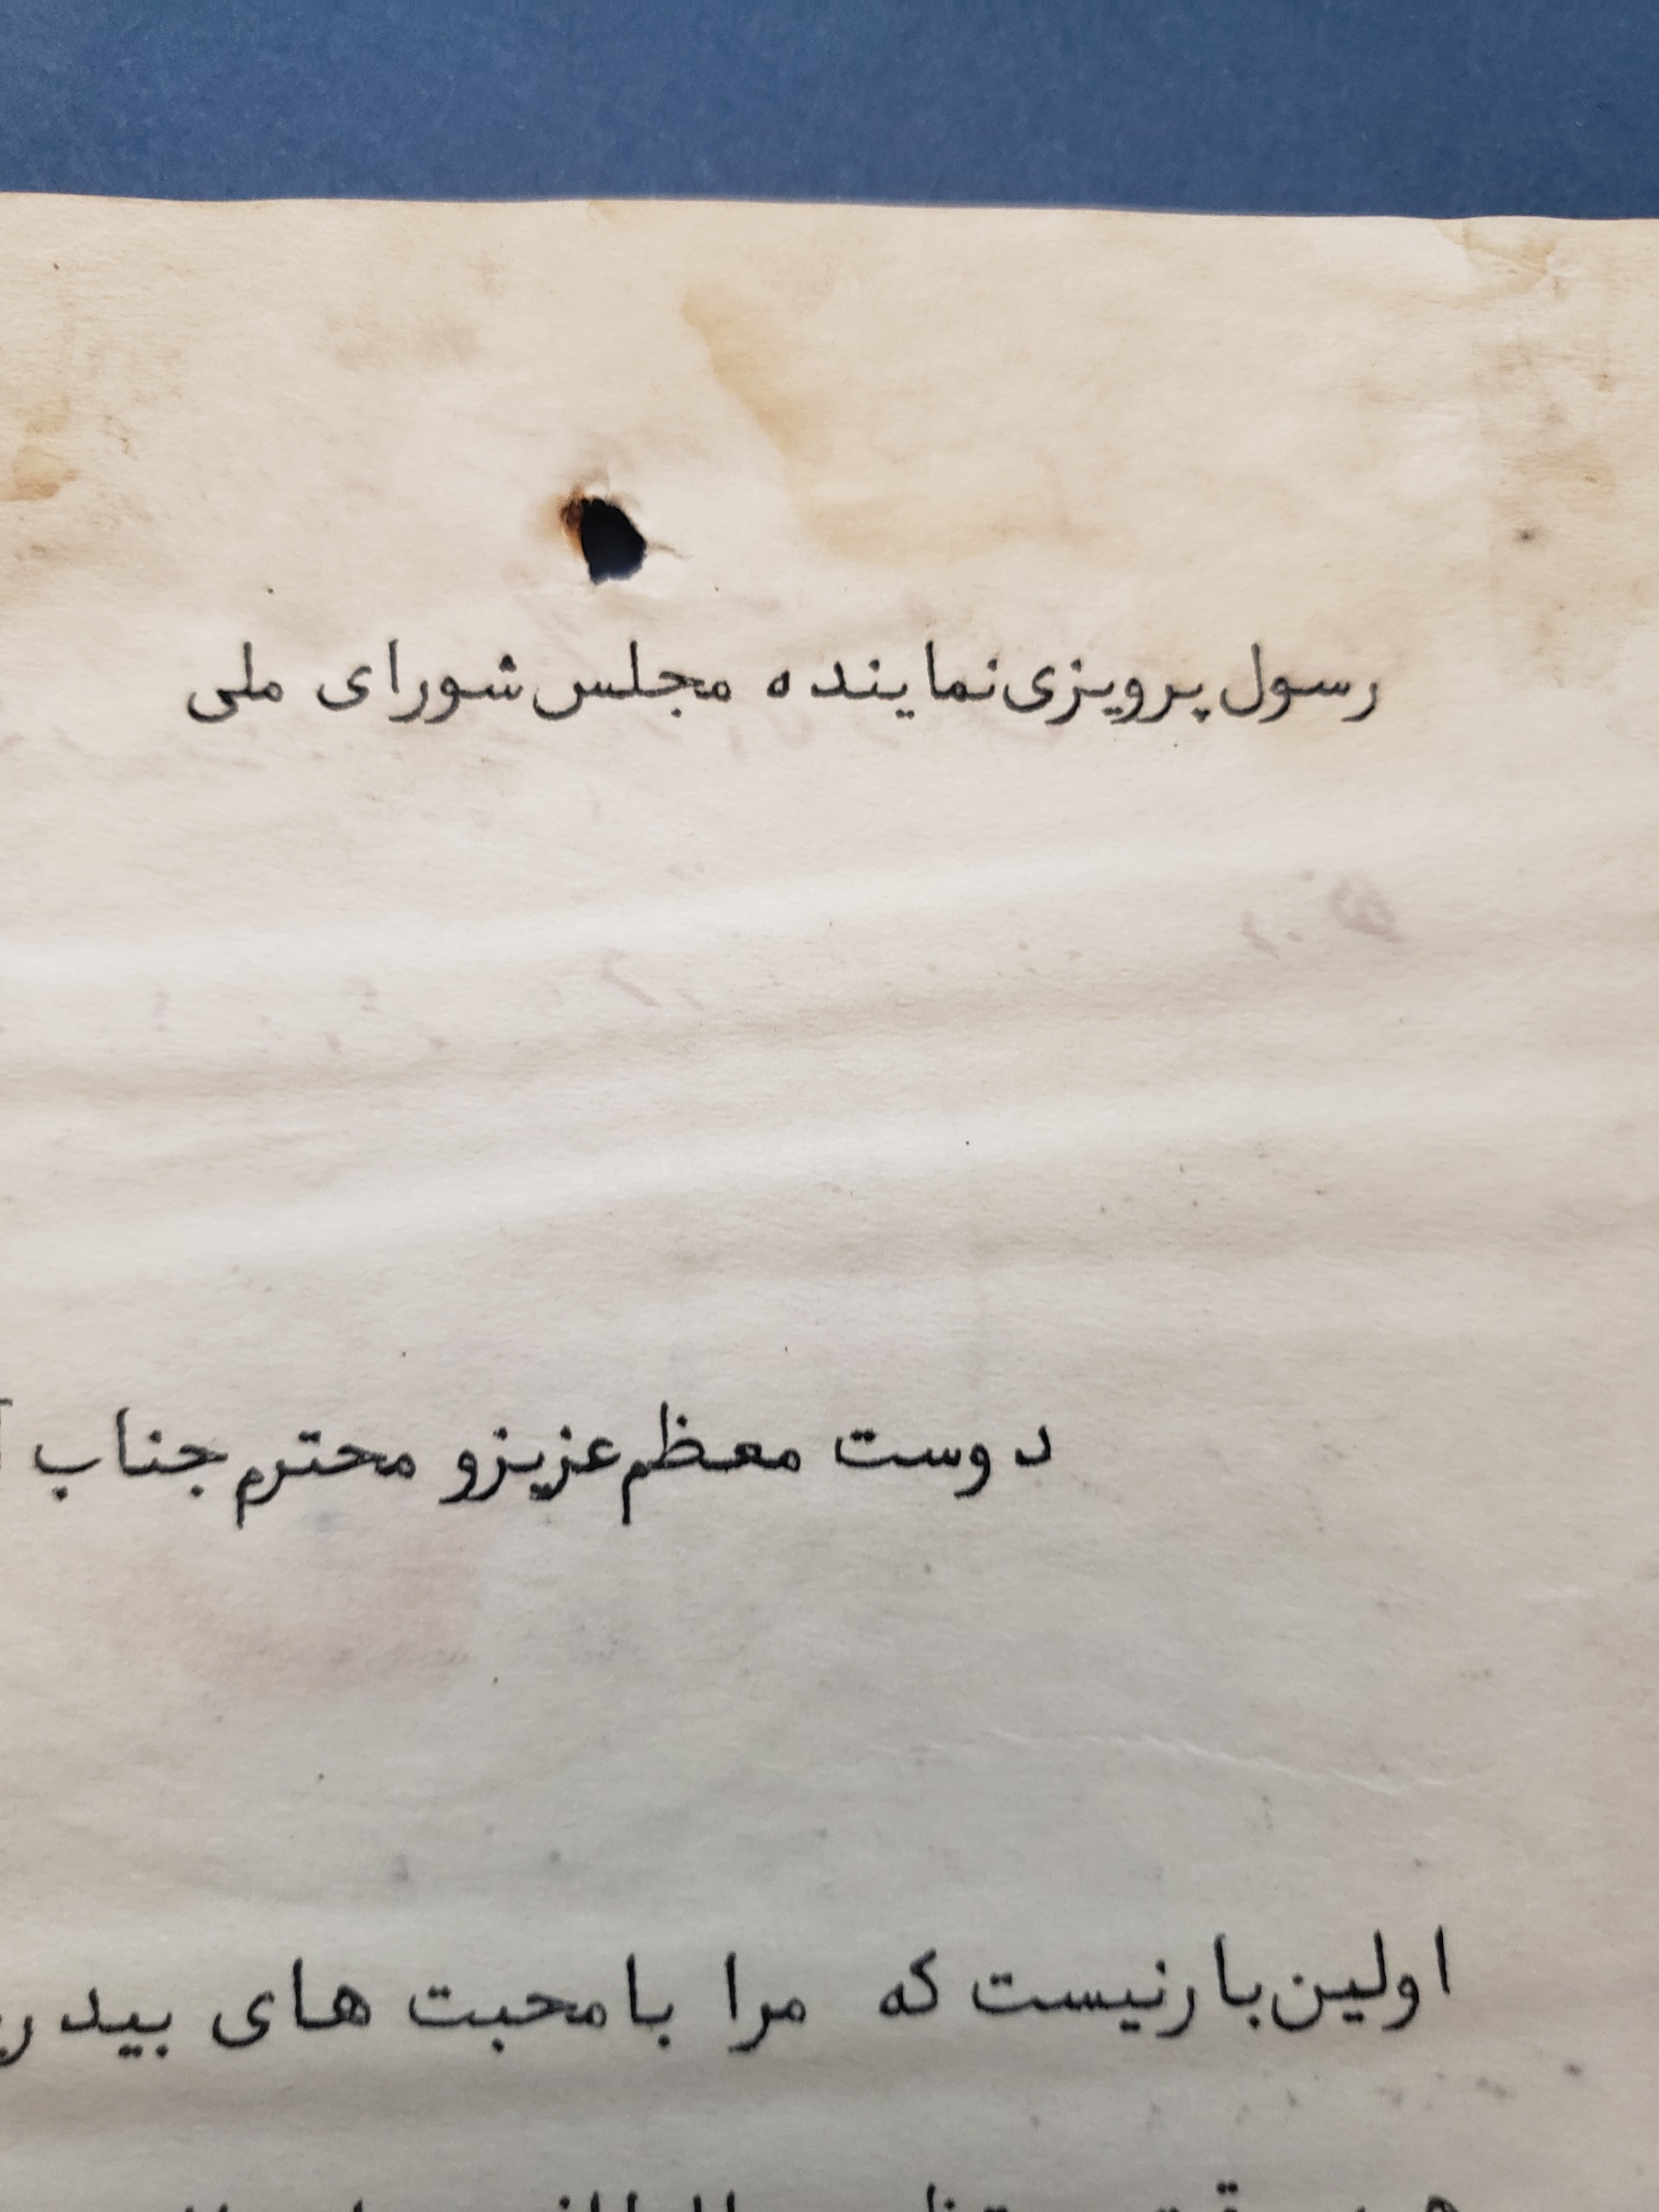 رسول پرویزی نماینده مجلس شورای ملی
دوست معظم عزیز و محترم جناب
اولین بار نیست که مرا با محبت های